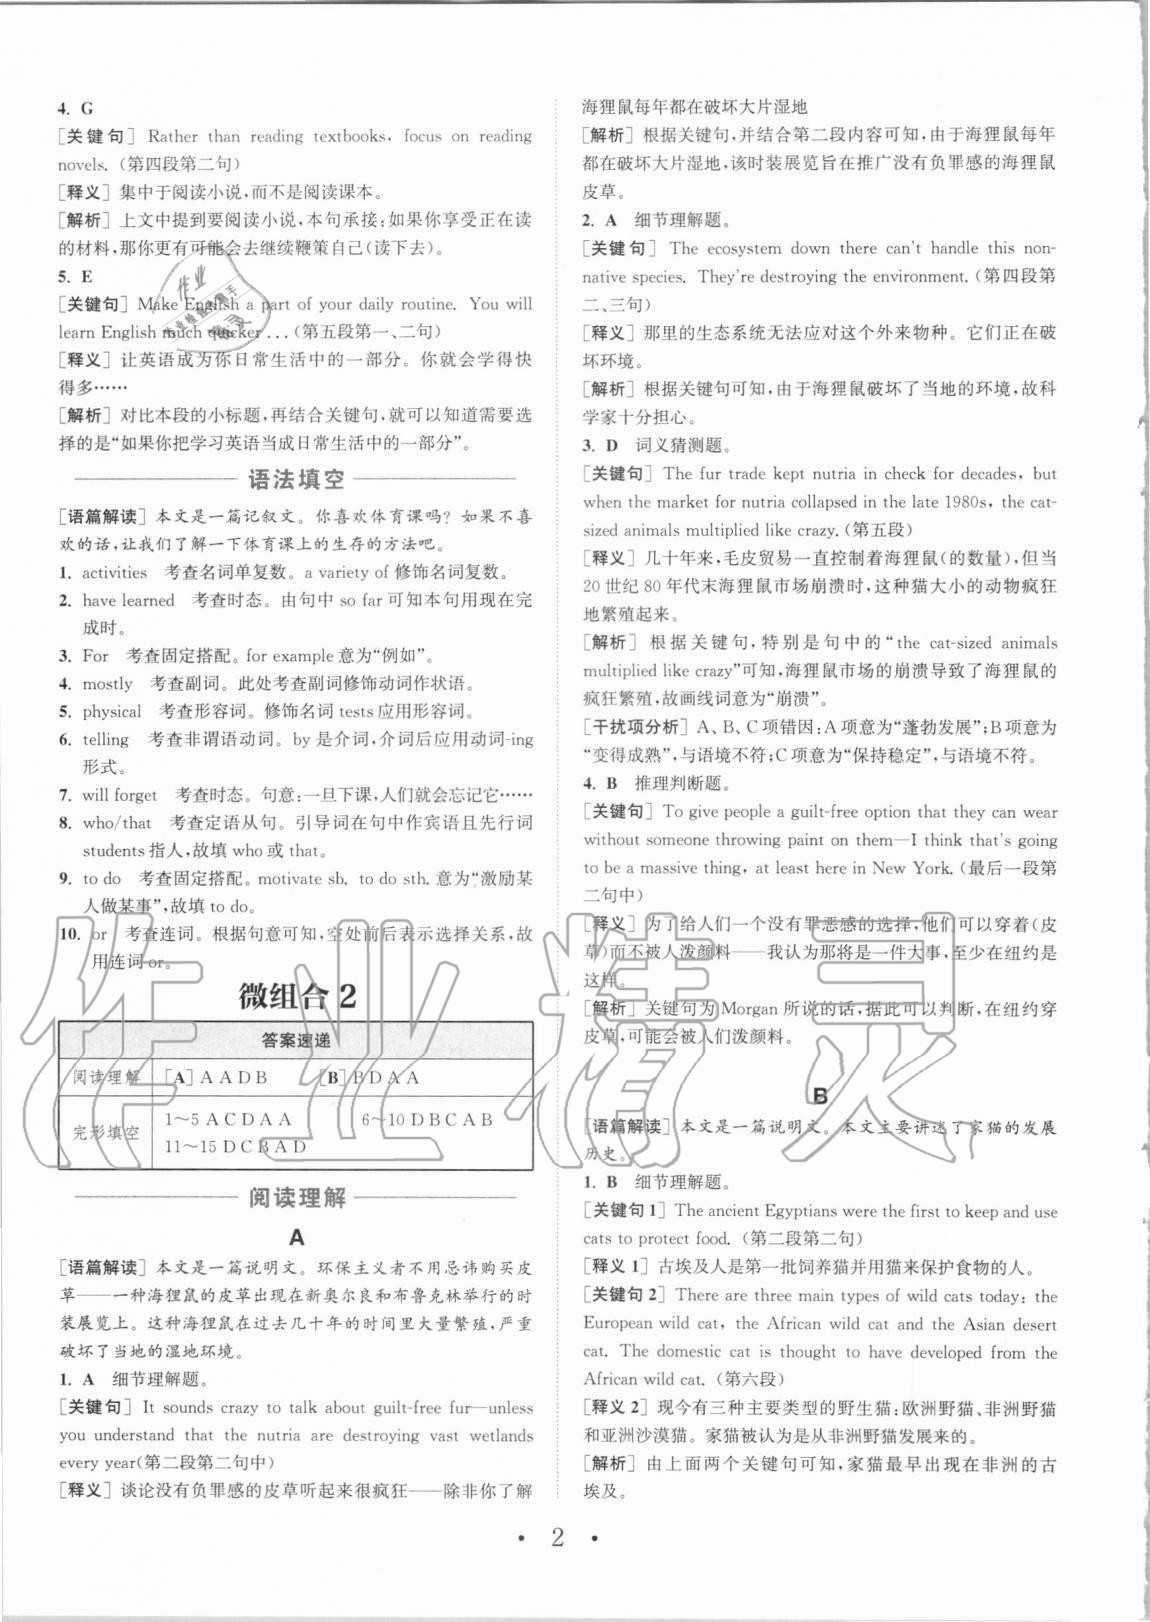 4. G
[关键句] Rather than reading textbooks, focus on reading
novels. (第四段第二句)
[释义] 集中于阅读小说,而不是阅读课本。
[解析] 上文中提到要阅读小说,本句承接:如果你享受正在读
的材料,那你更有可能会去继续鞭策自己(读下去)。
5. E
[关键句] Make English a part of your daily routine. You will
learn English much quicker ... (第五段第一、二句)
[释义] 让英语成为你日常生活中的一部分。你就会学得快
得多……
[解析] 对比本段的小标题,再结合关键句,就可以知道需要选
择的是“如果你把学习英语当成日常生活中的一部分”。
语法填空
[语篇解读] 本文是一篇记叙文。你喜欢体育课吗?如果不喜
欢的话,让我们了解一下体育课上的生存的方法吧。
1. activities 考查名词单复数。a variety of 修饰名词复数。
2. have learned 考查时态。由句中 so far 可知本句用现在完
成时。
3. For 考查固定搭配。for example 意为“例如”。
4. mostly 考查副词。此处考查副词修饰动词作状语。
5. physical 考查形容词。修饰名词 tests 应用形容词。
6. telling 考查非谓语动词。by 是介词,介词后应用动词-ing
形式。
7. will forget 考查时态。句意:一旦下课,人们就会忘记它……
8. who/that 考查定语从句。引导词在句中作宾语且先行词
students 指人,故填 who 或 that。
9. to do 考查固定搭配。motivate sb. to do sth. 意为“激励某
人做某事”,故填 to do。
10. or 考查连词。根据句意可知,空处前后表示选择关系,故
用连词 or。
微组合 2
答案速递
阅读理解 [A] A A D B [B] B D A A
完形填空 1～5 A C D A A 6～10 D B C A B
11～15 D C B A D
阅读理解
A
[语篇解读] 本文是一篇说明文。环保主义者不用忌讳购买皮
草——一种海狸鼠的皮草出现在新奥尔良和布鲁克林举行的时
装展览上。这种海狸鼠在过去几十年的时间里大量繁殖,严重
破坏了当地的湿地环境。
1. A 细节理解题。
[关键句] It sounds crazy to talk about guilt-free fur—unless
you understand that the nutria are destroying vast wetlands
every year(第二段第二句中)
[释义] 谈论没有负罪感的皮草听起来很疯狂——除非你了解
海狸鼠每年都在破坏大片湿地
[解析] 根据关键句,并结合第二段内容可知,由于海狸鼠每年
都在破坏大片湿地,该时装展览旨在推广没有负罪感的海狸鼠
皮草。
2. A 细节理解题。
[关键句] The ecosystem down there can't handle this non-
native species. They're destroying the environment. (第四段第
二、三句)
[释义] 那里的生态系统无法应对这个外来物种。它们正在破
坏环境。
[解析] 根据关键句可知,由于海狸鼠破坏了当地的环境,故科
学家十分担心。
3. D 词义猜测题。
[关键句] The fur trade kept nutria in check for decades, but
when the market for nutria collapsed in the late 1980s, the cat-
sized animals multiplied like crazy. (第五段)
[释义] 几十年来,毛皮贸易一直控制着海狸鼠(的数量),但当
20 世纪 80 年代末海狸鼠市场崩溃时,这种猫大小的动物疯狂
地繁殖起来。
[解析] 根据关键句,特别是句中的“the cat-sized animals
multiplied like crazy”可知,海狸鼠市场的崩溃导致了海狸鼠的
疯狂繁殖,故画线词意为“崩溃”。
[干扰项分析] A、B、C 项错因:A 项意为“蓬勃发展”;B 项意为
“变得成熟”,与语境不符;C 项意为“保持稳定”,与语境不符。
4. B 推理判断题。
[关键句] To give people a guilt-free option that they can wear
without someone throwing paint on them—I think that's going
to be a massive thing, at least here in New York. (最后一段第
二句中)
[释义] 为了给人们一个没有罪恶感的选择,他们可以穿着(皮
草)而不被人泼颜料——我认为那将是一件大事,至少在纽约是
这样。
[解析] 关键句为 Morgan 所说的话,据此可以判断,在纽约穿
皮草,可能会被人们泼颜料。
B
[语篇解读] 本文是一篇说明文。本文主要讲述了家猫的发展
历史。
1. B 细节理解题。
[关键句 1] The ancient Egyptians were the first to keep and use
cats to protect food. (第二段第二句)
[释义 1] 古埃及人是第一批饲养猫并用猫来保护食物的人。
[关键句 2] There are three main types of wild cats today: the
European wild cat, the African wild cat and the Asian desert
cat. The domestic cat is thought to have developed from the
African wild cat. (第六段)
[释义 2] 现今有三种主要类型的野生猫:欧洲野猫、非洲野猫
和亚洲沙漠猫。家猫被认为是从非洲野猫发展来的。
[解析] 由上面两个关键句可知,家猫最早出现在非洲的古
埃及。
· 2 ·
作业精灵